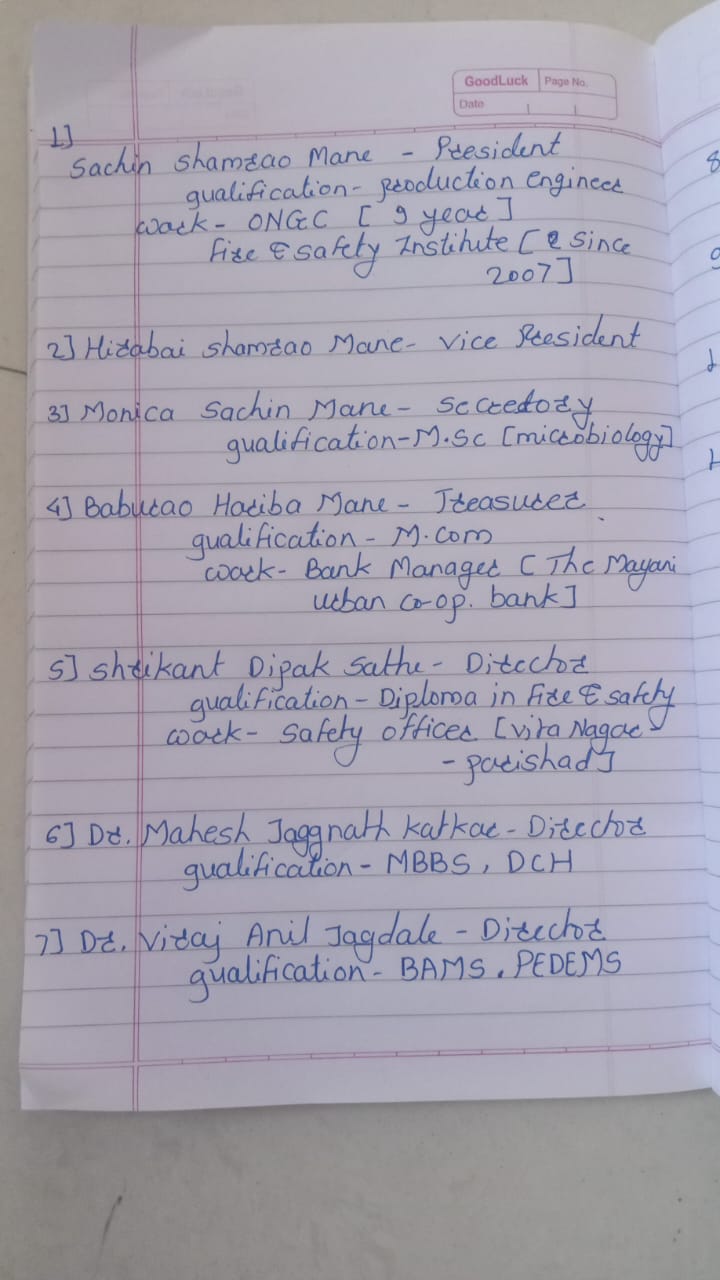 GoodLuck Page No.
Date
1]
Sachin Shamrao Mane - President
qualification - production engineer
work - ONGC [ 9 year ]
Fire & safety Institute [ Since
2007 ]
2] Hirabai Shamrao Mane - Vice President
3] Monica Sachin Mane - Seccretory
qualification - M.Sc [microbiology]
4] Baburao Hariba Mane - Treasurer
qualification - M.com
work - Bank Manager [ The Mayani
urban co-op. bank ]
5] Shrikant Dipak Sathe - Director
qualification - Diploma in Fire & safety
work - Safety officer [vita Nagar
- parishad ]
6] Dr. Mahesh Jaggnath Katkar - Director
qualification - MBBS, DCH
7] Dr. Viraj Anil Jagdale - Director
qualification - BAMS, PEDEMS